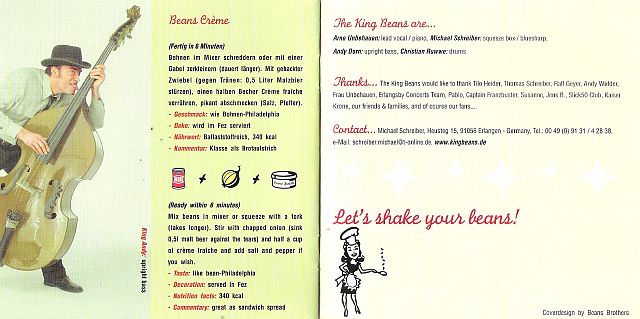 Beans Crème
(Fertig in 6 Minuten)
Bohnen im Mixer schreddern oder mit einer
Gabel zerkleinern (dauert länger). Mit gehackter
Zwiebel (gegen Tränen: 0,5 Liter Malzbier
stürzen), einen halben Becher Crème fraîche
verrühren, pikant abschmecken (Salz, Pfeffer).
- Geschmack: wie Bohnen-Philadelphia
- Deko: wird im Fez serviert
- Nährwert: Ballaststoffreich, 340 kcal
- Kommentar: Klasse als Brotaufstrich
(Ready within 6 minutes)
Mix beans in mixer or squeeze with a fork
(takes longer). Stir with chopped onion (sink
0,5l malt beer against the tears) and half a cup
of crème fraîche and add salt and pepper if
you wish.
- Taste: like bean-Philadelphia
- Decoration: served in Fez
- Nutrition facts: 340 kcal
- Commentary: great as sandwich spread
King Andy: upright bass
The King Beans are...
Arne Unbehauen: lead vocal / piano, Michael Schreiber: squeeze box / bluesharp,
Andy Dorn: upright bass, Christian Ruwwe: drums
Thanks... The King Beans would like to thank Tilo Heider, Thomas Schreiber, Ralf Geyer, Andy Widder,
Frau Unbehauen, Erlangsby Concerts Team, Pablo, Captain Franzbuster, Susanne, Jens B., Slick50 Club, Kaiser
Krone, our friends & families, and of course our fans...
Contact... Michael Schreiber, Heusteg 15, 91056 Erlangen - Germany, Tel.: 00 49 (0) 91 31 / 4 28 38,
e-Mail: schreiber.michael@t-online.de, www.kingbeans.de
Let's shake your beans!
Coverdesign by Beans Brothers